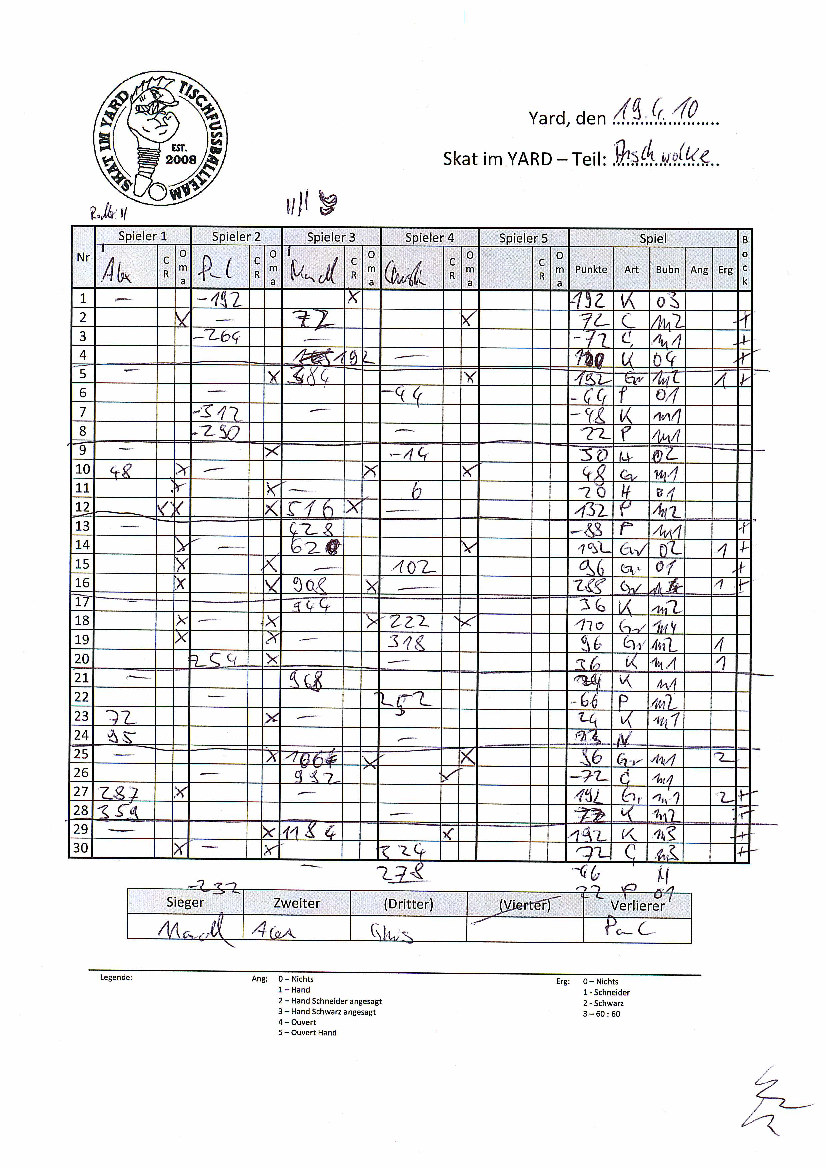 SKAT IM YARD TISCHFUSSBALLTEAM
EST.
2008
Yard, den 19.4.10
Skat im YARD – Teil:
Nr Spieler 1 Spieler 2 Spieler 3 Spieler 4 Spieler 5 Spiel Bock
Alex CR Oma Paul CR Oma CR Oma CR Oma CR Oma Punkte Art Bubn Ang Erg
1 — -192 X 192 K 03
2 X — 72 X 72 C m2 +
3 -264 — -72 C m1 +
4 192 — K 04 +
5 — X 384 X 192 Gr m2 1 +
6 — -44 -44 P 01
7 -312 — -48 K m1
8 -290 — 22 P m1
9 — X -14 30 H 02
10 48 X — X X 48 Gr m1
11 X X — 6 20 H 01
12 X X X 516 X — 132 P m2
13 — 428 -88 P m1 +
14 X — 620 X 192 Gr 02 1 +
15 X X — 102 96 Gr 01 +
16 X X 908 X — 288 Gr 1 +
17 — 944 36 K m2
18 X X X 222 X 120 Gr m4
19 X X — 318 96 Gr m2 1
20 -254 X — 36 K m1 1
21 — 968 24 K m1
22 — 252 -66 P m2
23 72 X — 24 K m1
24 95 — 23 N
25 — X X X 36 Gr m1 2
26 — 992 X -72 C m1
27 287 X — 192 Gr m1 2 +
28 359 — 72 K m2 +
29 — X 1184 X 192 K m3 +
30 X — X 324 72 C m3 +
— 278 -46 H
-232 22 P 01
Sieger Zweiter (Dritter) (Vierter) Verlierer
Alex Chris Paul
Legende: Ang: 0 – Nichts Erg: 0 – Nichts
1 – Hand 1 - Schneider
2 – Hand Schneider angesagt 2 - Schwarz
3 – Hand Schwarz angesagt 3 – 60 : 60
4 – Ouvert
5 – Ouvert Hand